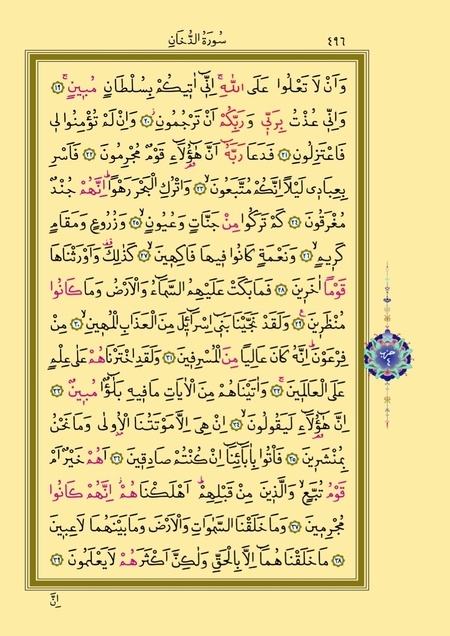 سُورَةُ الدُّخَانِ ٤٩٦
وَاَنْ لَا تَعْلُوا عَلَى اللّٰهِۚ اِنّ۪ٓي اٰت۪يكُمْ بِسُلْطَانٍ مُب۪ينٍۚ ﴿١٩﴾
وَاِنّ۪ي عُذْتُ بِرَبّ۪ي وَرَبِّكُمْ اَنْ تَرْجُمُونِۘ ﴿٢٠﴾ وَاِنْ لَمْ تُؤْمِنُوا ل۪ي
فَاعْتَزِلُونِ ﴿٢١﴾ فَدَعَا رَبَّهُٓ اَنَّ هٰٓؤُ۬لَٓاءِ قَوْمٌ مُجْرِمُونَ ﴿٢٢﴾ فَاَسْرِ
بِعِبَاد۪ي لَيْلاً اِنَّكُمْ مُتَّبَعُونَۙ ﴿٢٣﴾ وَاتْرُكِ الْبَحْرَ رَهْواًۜ اِنَّهُمْ جُنْدٌ
مُغْرَقُونَ ﴿٢٤﴾ كَمْ تَرَكُوا مِنْ جَنَّاتٍ وَعُيُونٍۙ ﴿٢٥﴾ وَزُرُوعٍ وَمَقَامٍ
كَر۪يمٍۙ ﴿٢٦﴾ وَنَعْمَةٍ كَانُوا ف۪يهَا فَاكِه۪ينَۙ ﴿٢٧﴾ كَذٰلِكَ۠ وَاَوْرَثْنَاهَا
قَوْماً اٰخَر۪ينَ ﴿٢٨﴾ فَمَا بَكَتْ عَلَيْهِمُ السَّمَٓاءُ وَالْاَرْضُ وَمَا كَانُوا
مُنْظَر۪ينَ۟ ﴿٢٩﴾ وَلَقَدْ نَجَّيْنَا بَن۪ٓي اِسْرَٓائ۪لَ مِنَ الْعَذَابِ الْمُه۪ينِۙ ﴿٣٠﴾ مِنْ
فِرْعَوْنَۜ اِنَّهُ كَانَ عَالِياً مِنَ الْمُسْرِف۪ينَ ﴿٣١﴾ وَلَقَدِ اخْتَرْنَاهُمْ عَلٰى عِلْمٍ
عَلَى الْعَالَم۪ينَۚ ﴿٣٢﴾ وَاٰتَيْنَاهُمْ مِنَ الْاٰيَاتِ مَا ف۪يهِ بَلٰٓؤٌ۬ا مُب۪ينٌ ﴿٣٣﴾
اِنَّ هٰٓؤُ۬لَٓاءِ لَيَقُولُونَۙ ﴿٣٤﴾ اِنْ هِيَ اِلَّا مَوْتَتُنَا الْاُو۫لٰى وَمَا نَحْنُ
بِمُنْشَر۪ينَ ﴿٣٥﴾ فَأْتُوا بِاٰبَٓائِنَٓا اِنْ كُنْتُمْ صَادِق۪ينَ ﴿٣٦﴾ اَهُمْ خَيْرٌ اَمْ
قَوْمُ تُبَّعٍۙ وَالَّذ۪ينَ مِنْ قَبْلِهِمْۜ اَهْلَكْنَاهُمْۘ اِنَّهُمْ كَانُوا
مُجْرِم۪ينَ ﴿٣٧﴾ وَمَا خَلَقْنَا السَّمٰوَاتِ وَالْاَرْضَ وَمَا بَيْنَهُمَا لَاعِب۪ينَ
﴿٣٨﴾ مَا خَلَقْنَاهُمَٓا اِلَّا بِالْحَقِّ وَلٰكِنَّ اَكْثَرَهُمْ لَا يَعْلَمُونَ ﴿٣٩﴾
اِنَّ
حزب
٤